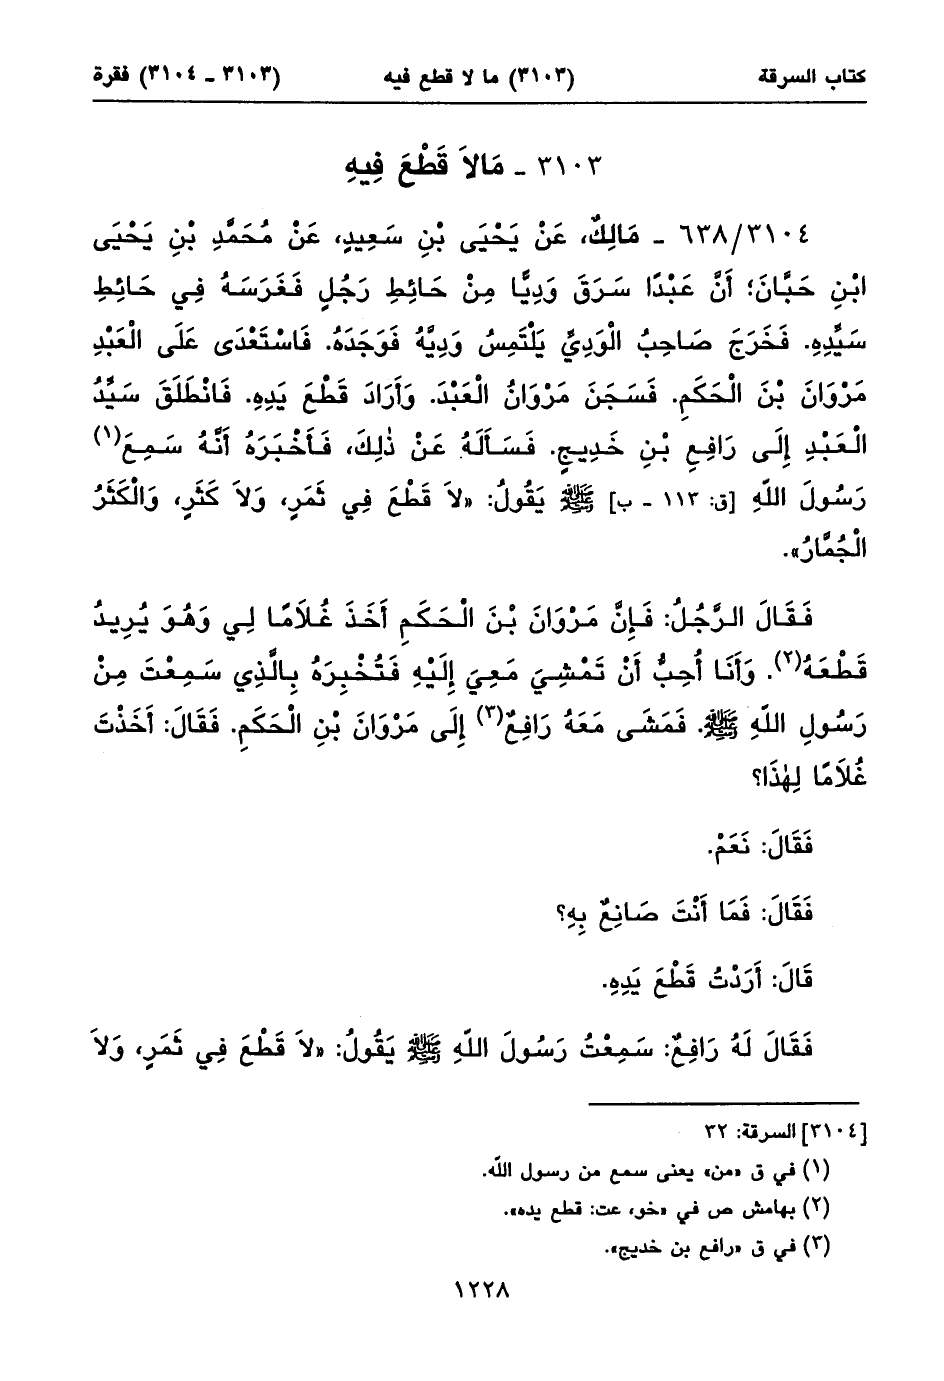 كتاب السرقة (٣١٠٣) ما لا قطع فيه (٣١٠٣ ـ ٣١٠٤) فقرة
٣١٠٣ ـ مَالاَ قَطْعَ فِيهِ
٦٣٨/٣١٠٤ ـ مَالِكٌ، عَنْ يَحْيَى بْنِ سَعِيدٍ، عَنْ مُحَمَّدِ بْنِ يَحْيَى
ابْنِ حَبَّانَ؛ أَنَّ عَبْدًا سَرَقَ وَدِيًّا مِنْ حَائِطِ رَجُلٍ فَغَرَسَهُ فِي حَائِطِ
سَيِّدِهِ. فَخَرَجَ صَاحِبُ الْوَدِيِّ يَلْتَمِسُ وَدِيَّهُ فَوَجَدَهُ. فَاسْتَعْدَى عَلَى الْعَبْدِ
مَرْوَانَ بْنَ الْحَكَمِ. فَسَجَنَ مَرْوَانُ الْعَبْدَ. وَأَرَادَ قَطْعَ يَدِهِ. فَانْطَلَقَ سَيِّدُ
الْعَبْدِ إِلَى رَافِعِ بْنِ خَدِيجٍ. فَسَأَلَهُ عَنْ ذٰلِكَ، فَأَخْبَرَهُ أَنَّهُ سَمِعَ(١)
رَسُولَ اللّهِ [ق: ١١٣ ـ ب] ﷺ يَقُولُ: «لاَ قَطْعَ فِي ثَمَرٍ، وَلاَ كَثَرٍ، وَالْكَثَرُ
الْجُمَّارُ».
فَقَالَ الرَّجُلُ: فَإِنَّ مَرْوَانَ بْنَ الْحَكَمِ أَخَذَ غُلَامًا لِي وَهُوَ يُرِيدُ
قَطْعَهُ(٢). وَأَنَا أُحِبُّ أَنْ تَمْشِيَ مَعِيَ إِلَيْهِ فَتُخْبِرَهُ بِالَّذِي سَمِعْتَ مِنْ
رَسُولِ اللّهِ ﷺ. فَمَشَى مَعَهُ رَافِعٌ(٣) إِلَى مَرْوَانَ بْنِ الْحَكَمِ. فَقَالَ: أَخَذْتَ
غُلَامًا لِهٰذَا؟
فَقَالَ: نَعَمْ.
فَقَالَ: فَمَا أَنْتَ صَانِعٌ بِهِ؟
قَالَ: أَرَدْتُ قَطْعَ يَدِهِ.
فَقَالَ لَهُ رَافِعٌ: سَمِعْتُ رَسُولَ اللّهِ ﷺ يَقُولُ: «لاَ قَطْعَ فِي ثَمَرٍ، وَلاَ
[٣١٠٤] السرقة: ٣٢
(١) في ق «من» يعنى سمع من رسول اللّه.
(٢) بهامش ص في «خو، عت: قطع يده».
(٣) في ق «رافع بن خديج».
١٢٢٨